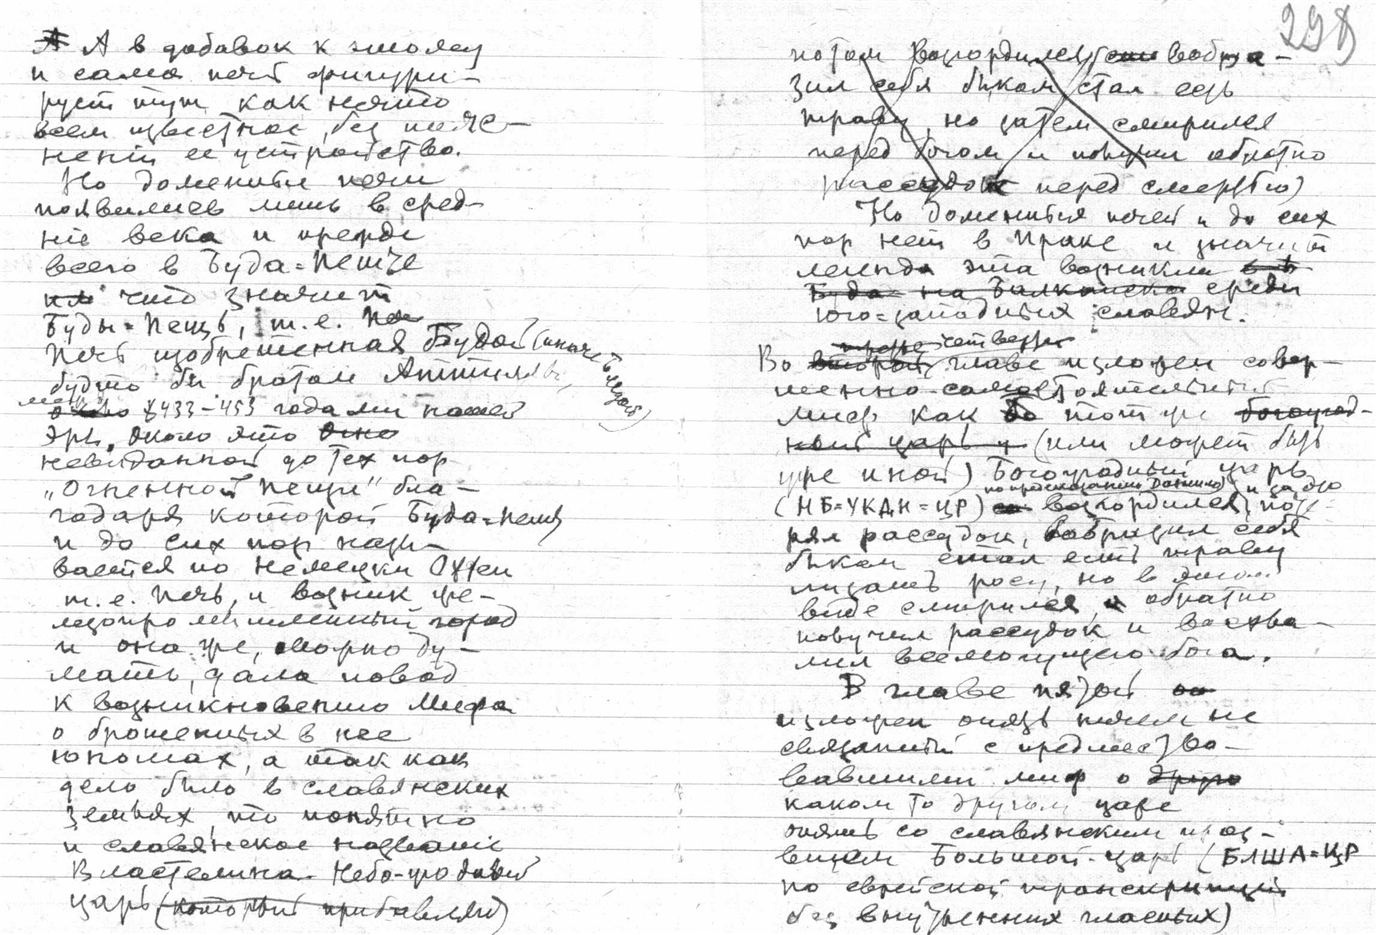 А в добавок к этому
и сама печь фигури-
рует тут как нечто
всем известное, без пояс-
нений ее устройства.
Но доменные печи
появились лишь в сред-
ние века и прежде
всего в Буда=Пеште
что значит
Буды=Пещь, т.е.
Печь изобретенная Будой (иначе Бледой)
будто бы братом Аттилы,
между 433–453 годами нашей
эры, около это
невиданной до тех пор
"Огненной пещи" бла-
годаря которой Буда=Пешт
и до сих пор назы-
вается по немецки Офен
т.е. Печь, и возник же-
лезопромышленный город
и она же, можно ду-
мать, дала повод
к возникновению мифа
о брошенных в нее
юношах, а так как
дело было в славянских
землях, то понятно
и славянское название
Властелина Небо-угодный
царь (который прибавляет)
298
потом возгордился, вообра-
зил себя быком, стал есть
траву, но затем смирился
перед богом и получил обратно
рассудок перед смертью)
Но доменных печей и до сих
пор нет в Ираке и значит
легенда эта возникла
Буда на Балканско среди
юго=западных славян.
четверт
Во второй главе изложен совер-
шенно самостоятельный
миф как тот же богоугод-
ный царь (или может быть
уже иной) Богоугодный царь
по предсказанию Даниила и за это
(НБ=УКДН=ЦР) возгордился, поте-
рял рассудок, вообразил себя
быком стал есть траву
лизать росу, но в этом
виде смирился, и обратно
получил рассудок и восхва-
лил всемогущего бога.
В главе пятой
изложен опять ничем не
связанный с предшество-
вавшими миф о друго
каком то другом царе
опять со славянским проз-
вищем Большой-царь (БЛША=ЦР
по еврейской транскрипции
без внутренних гласных)